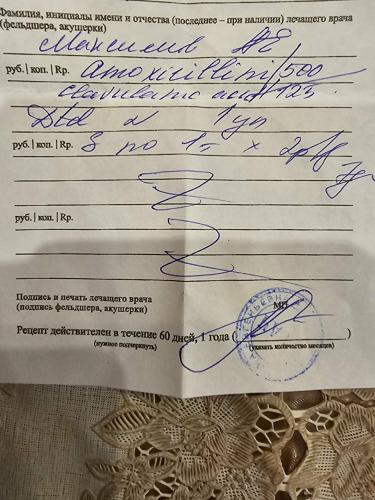 Фамилия, инициалы имени и отчества (последнее – при наличии) лечащего врача
(фельдшера, акушерки)
руб. | коп. | Rp. Amoxicillini/500
Clavulanic acid 125
Dtd N 1 уп
руб. | коп. | Rp. S по 1т × 2р/д
7д
руб. | коп. | Rp.
Подпись и печать лечащего врача
(подпись фельдшера, акушерки)
МП
Рецепт действителен в течение 60 дней, 1 года (
)
(нужное подчеркнуть)
(указать количество месяцев)